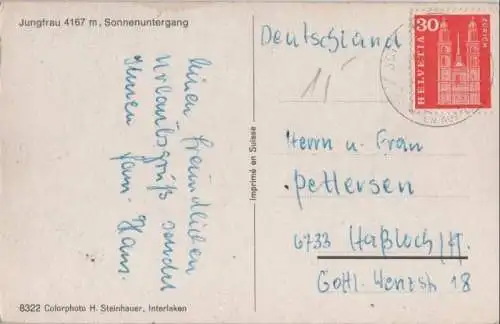 Jungfrau 4167 m, Sonnenuntergang
Einen freundlichen
Urlaubsgruß sendet
Ihnen
Fam. Hans.
8322 Colorphoto H. Steinhauer, Interlaken
Imprimé en Suisse
Deutschland
30
HELVETIA
ZÜRICH
Herrn u. Frau
Pettersen
6733 Haßloch/Pf.
Gottl. Wenzstr. 18